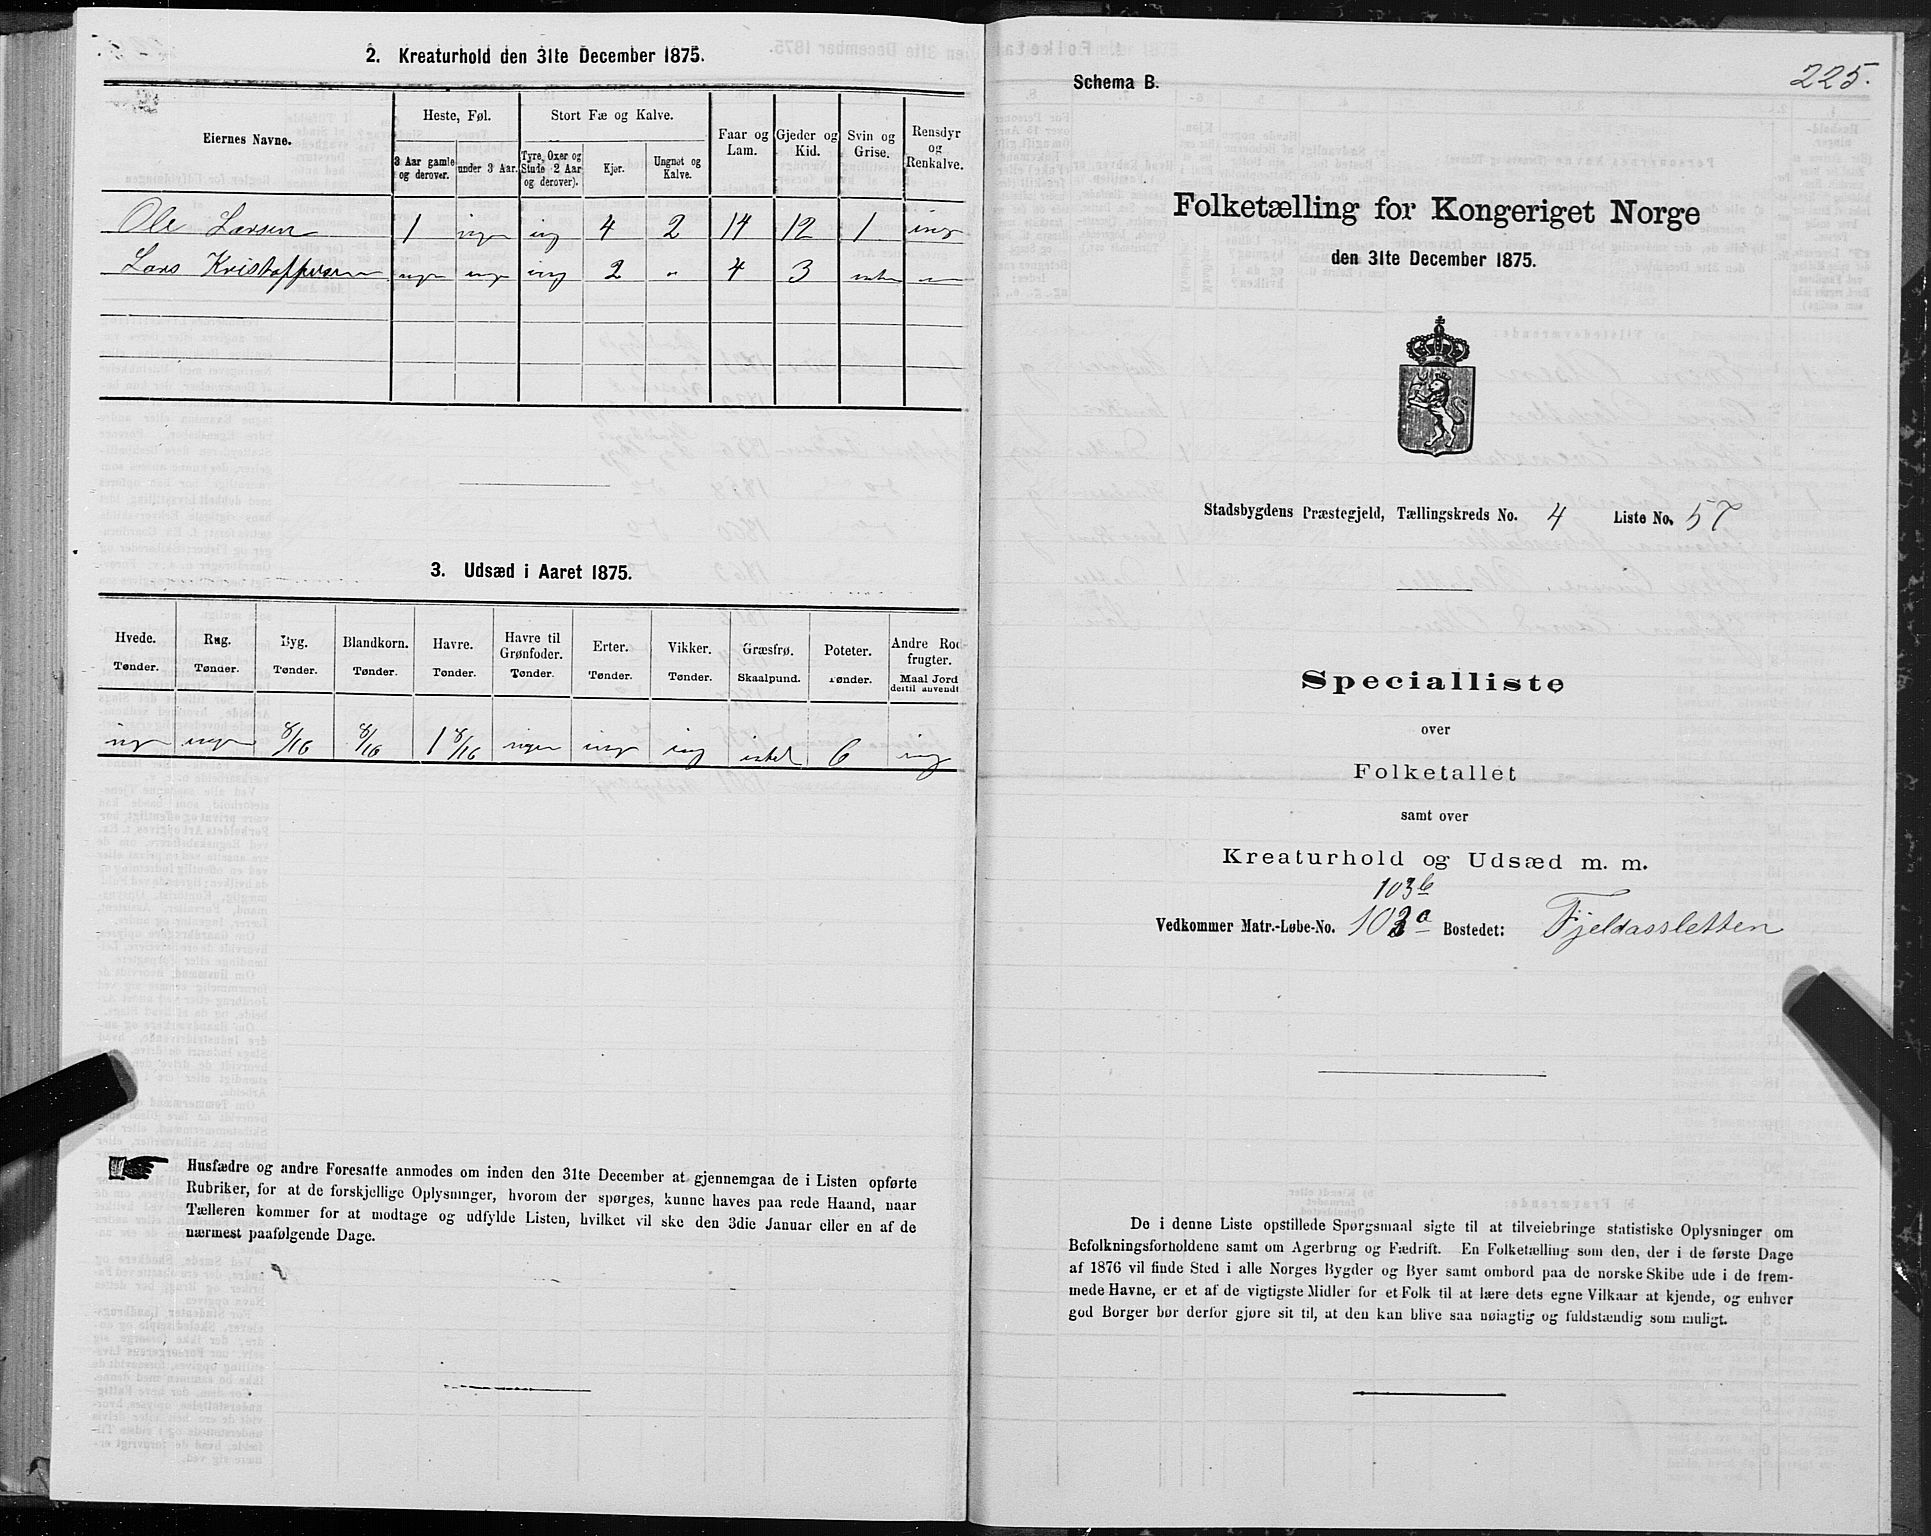 2. Kreaturhold den 31te December 1875.
Eiernes Navne.
Heste, Føl.
Stort Fæ og Kalve.
Faar og Lam.
Gjeder og Kid.
Svin og Grise.
Rensdyr og Renkalve.
3 Aar gamle og derover.
under 3 Aar.
Tyre, Oxer og Stude 2 Aar og derover).
Kjør.
Ungnøt og Kalve.
Ole Larsen 1 ingen ing 4 2 14 12 1 ing
Lars Kristoffersen ingen ingen ing 2 " 4 3 intet "
3. Udsæd i Aaret 1875.
Hvede. Rug. Byg. Blandkorn. Havre. Havre til Grønfoder. Erter. Vikker. Græsfrø. Poteter. Andre Rodfrugter.
Tønder. Tønder. Tønder. Tønder. Tønder. Tønder. Tønder. Tønder. Skaalpund. Tønder. Maal Jord dertil anvendt
ingen ingen 8/16 8/16 1 8/16 ingen ing ing intet 6 ing
Husfædre og andre Foresatte anmodes om inden den 31te December at gjennemgaa de i Listen opførte
Rubriker, for at de forskjellige Oplysninger, hvorom der spørges, kunne haves paa rede Haand, naar
Tælleren kommer for at modtage og udfylde Listen, hvilket vil ske den 3die Januar eller en af de
nærmest paafølgende Dage.
225.
Schema B.
Folketælling for Kongeriget Norge
den 31te December 1875.
Stadsbygdens Præstegjeld, Tællingskreds No. 4 Liste No. 57
Specialliste
over
Folketallet
samt over
Kreaturhold og Udsæd m. m.
103b
Vedkommer Matr.-Løbe-No. 103a Bostedet: Fjeldassletten
De i denne Liste opstillede Spørgsmaal sigte til at tilveiebringe statistiske Oplysninger om
Befolkningsforholdene samt om Agerbrug og Fædrift. En Folketælling som den, der i de første Dage
af 1876 vil finde Sted i alle Norges Bygder og Byer samt ombord paa de norske Skibe ude i de frem-
mede Havne, er et af de vigtigste Midler for et Folk til at lære dets egne Vilkaar at kjende, og enhver
god Borger bør derfor gjøre sit til, at den kan blive saa nøiagtig og fuldstændig som muligt.